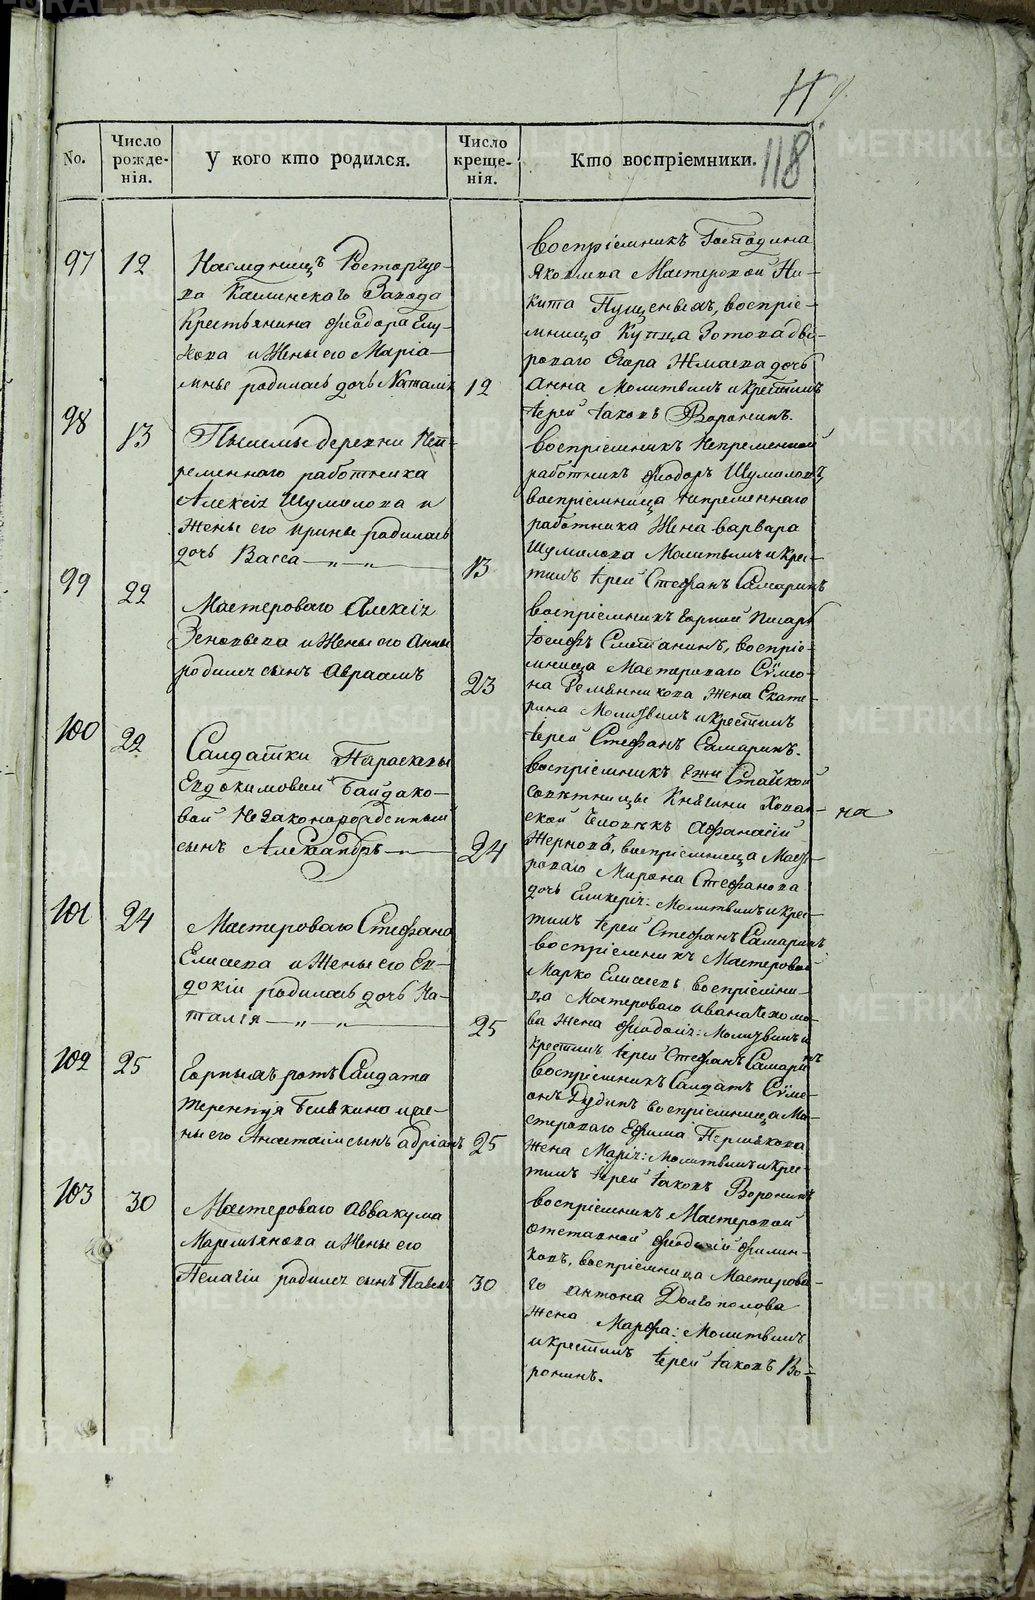 118
No.
Число рожденія.
У кого кто родился.
Число крещенія.
Кто воспріемники.
97
12
Наследницъ Расторгуе-
ва Каслинскаго Завода
Крестьянина Ѳиодора
и Жены его Маріа-
мны родилась дочь Наталія
12
воспріемникъ Господина
Яковлева Мастеровой Ни-
кита Пущеныхъ, воспріе-
мница Купца
Егора дочь
Анна Молитвилъ и крестилъ
Іерей Іаковъ Воронинъ.
98
13
деревни Неп-
ременнаго работника
Алексія Шумилова и
Жены его Ирины родилась
дочь Васса
13
воспріемникъ Непременной
работникъ Ѳиодоръ Шумиловъ,
воспріемница Непременнаго
работника Жена Варвара
Шумилова Молитвилъ и Крес-
тилъ Іерей Стефанъ Самаринъ
99
22
Мастероваго Алексія
Зеновьева и Жены его Анны
родился сынъ Авраамъ
23
воспріемникъ Горной Писарь
Іосифъ Сметанинъ, воспріе-
мница Мастероваго Сѵмео-
на Ременникова Жена Екате-
рина Молитвилъ и крестилъ
Іерей Стефанъ Самаринъ.
100
22
Салдатки Параскевы
Евдокимовой Байдако-
вой Незаконорожденный
сынъ Александръ
24
воспріемникъ Статской
Советницы Княгини Хован-
ской Человекъ Афанасій
Жерновъ, воспріемница Масте-
роваго Мирона Стефанова
дочь Гликерія: Молитвилъ и крес-
тилъ Іерей Стефанъ Самаринъ
на
101
24
Мастероваго Стефана
Елисеева и Жены его Ев-
докіи родилась дочь На-
талія
25
воспріемникъ Мастеровой
Марко Елисеевъ воспріемни-
ца Мастероваго Ивана
ва Жена Молитвилъ и
крестилъ Іерей Стефанъ Самаринъ
102
25
Горныхъ ротъ Салдата
Терентія Белкина и же-
ны его Анастасіи сынъ Адріанъ
25
воспріемникъ Салдатъ Сѵме-
онъ Дудинъ воспріемница Ма-
стероваго Ефима Пермякова
Жена Марія: Молитвилъ и Крес-
тилъ Іерей Іаковъ Воронинъ
103
30
Мастероваго Аввакума
Маремьянова и Жены его
Пелагіи родился сынъ Павелъ
30
воспріемникъ Мастеровой
отставной Филин-
ковъ, воспріемница Мастерова-
го Антона Долгополова
Жена Марфа: Молитвилъ
и крестилъ Іерей Іаковъ Во-
ронинъ.